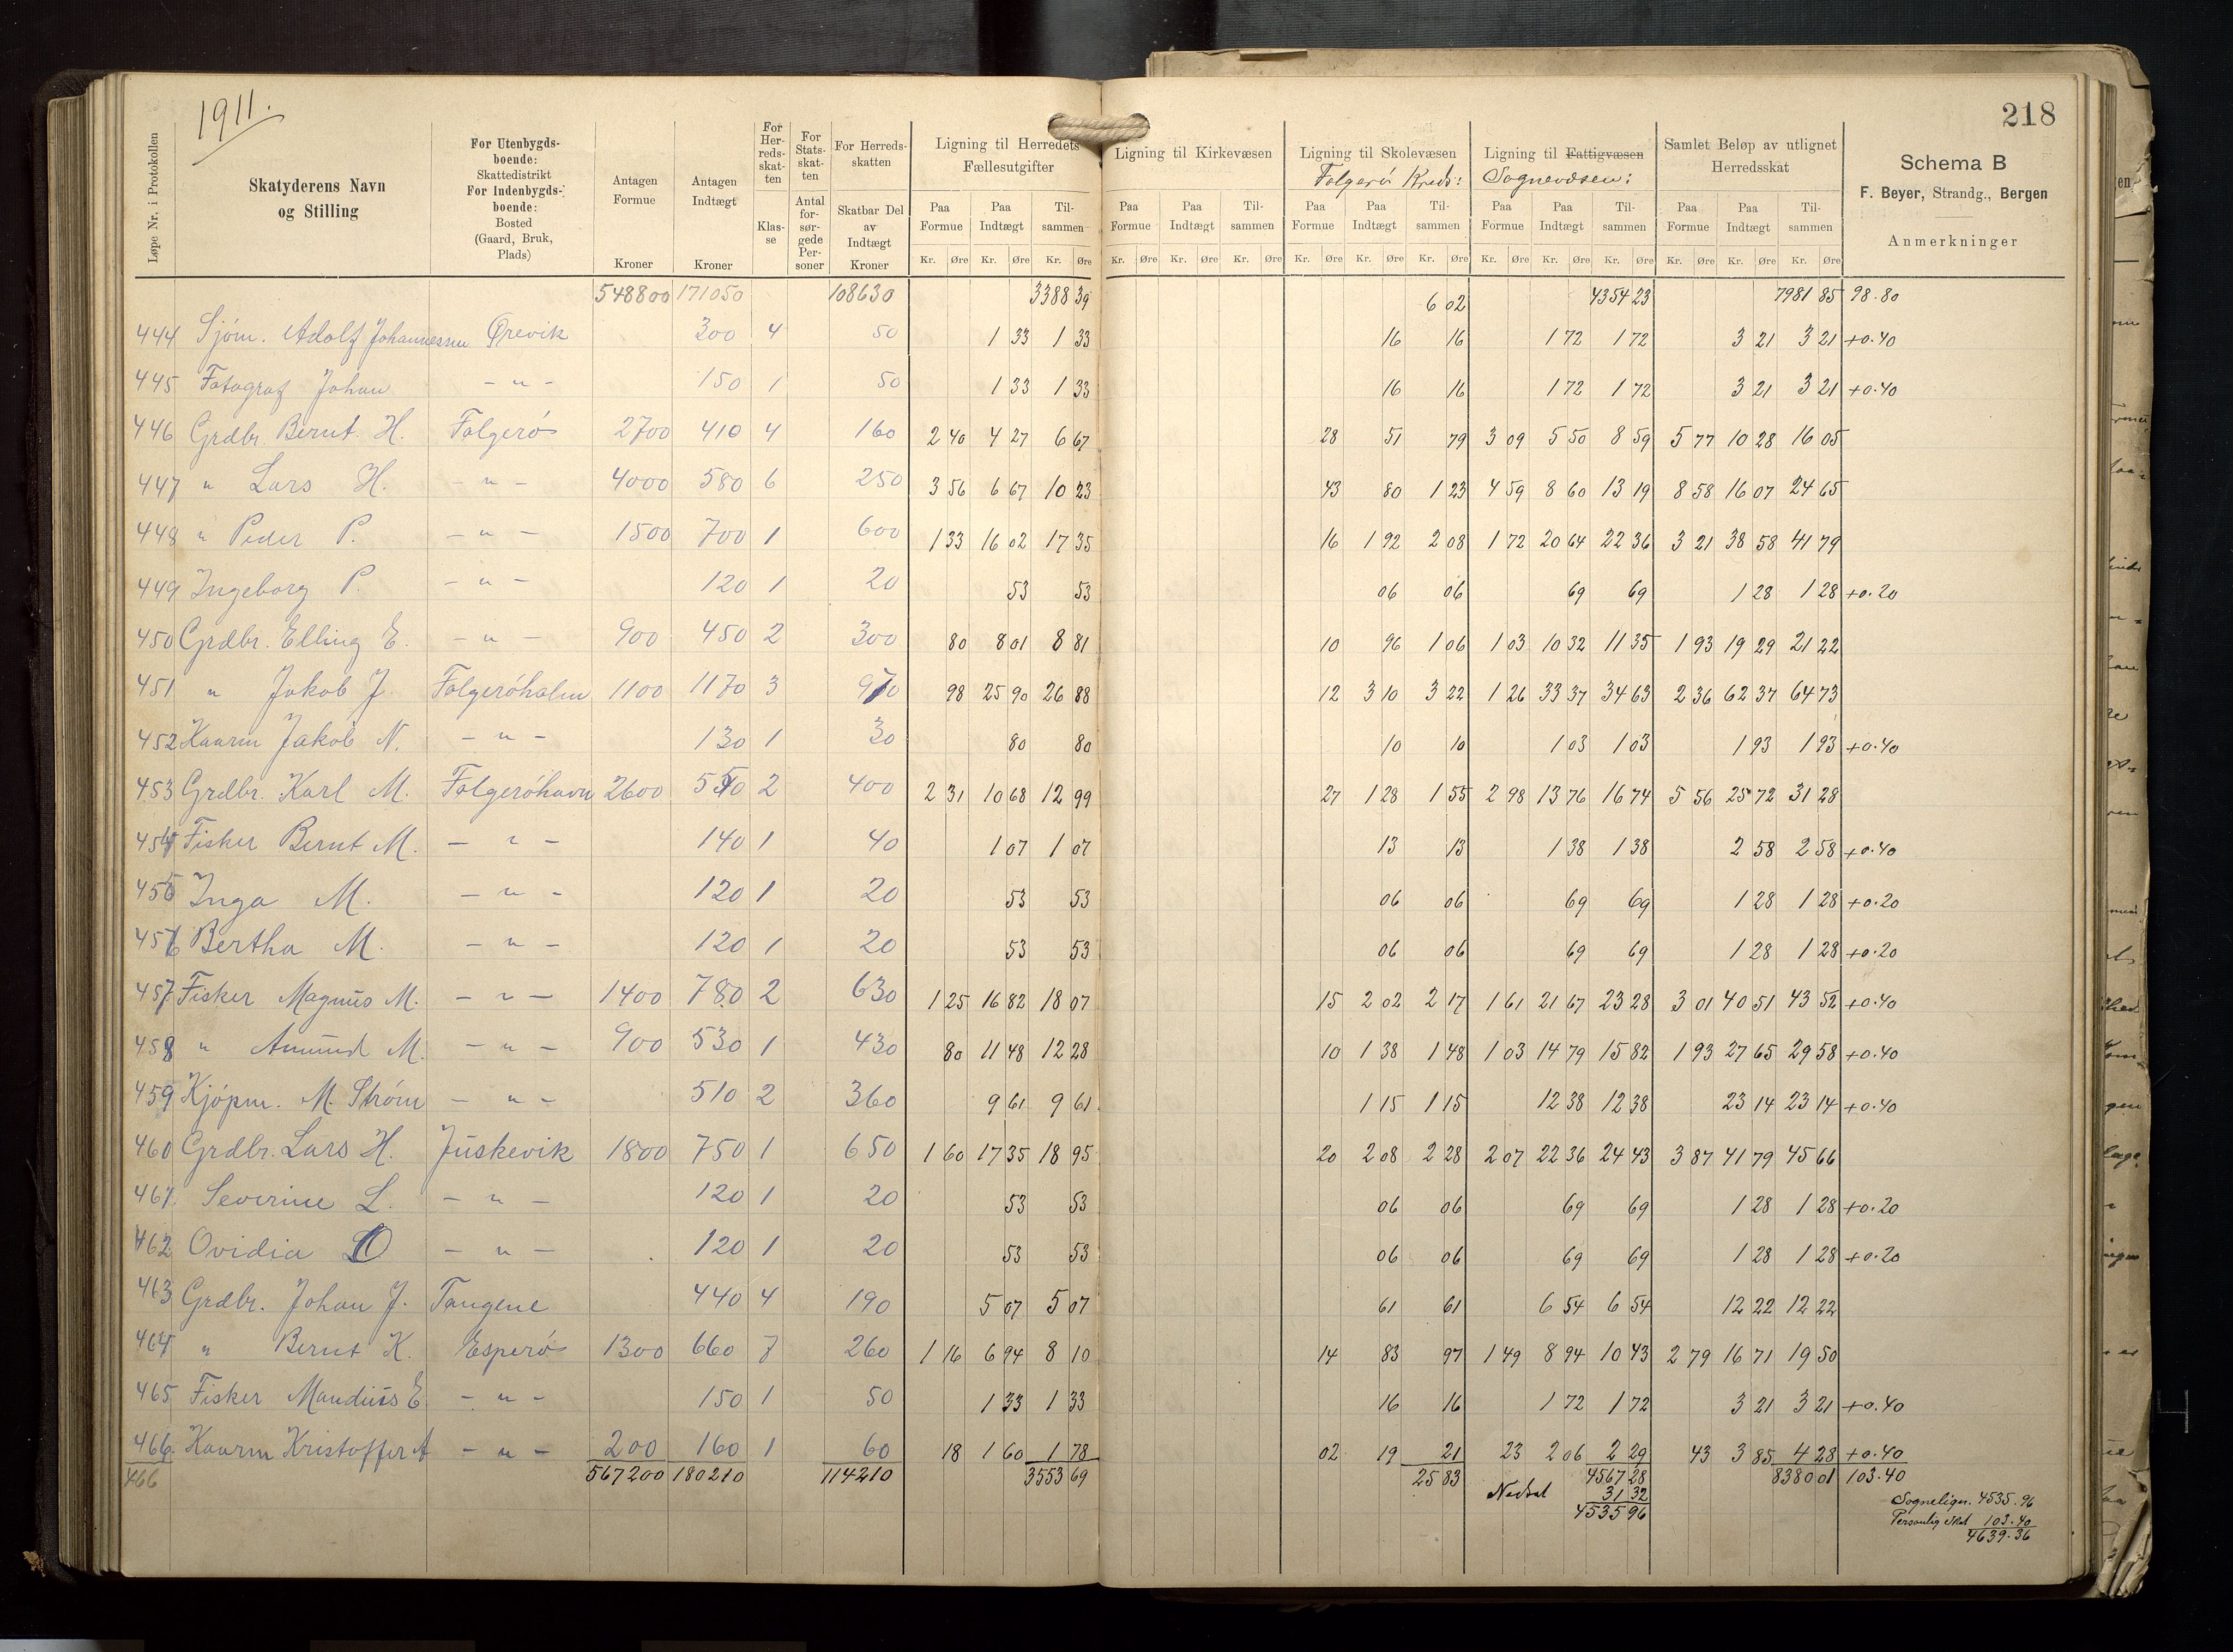 1911.
218
Løpe Nr. i Protokollen
Skatyderens Navn og Stilling
For Utenbygdsboende: Skattedistrikt For Indenbygdsboende: Bosted (Gaard, Bruk, Plads)
Antagen Formue Kroner
Antagen Indtægt Kroner
For Herredsskatten Klasse
For Statsskatten Antal forsørgede Personer
For Herredsskatten Skatbar Del av Indtægt Kroner
Ligning til Herredets Fællesutgifter
Ligning til Kirkevæsen
Ligning til Skolevæsen Folgerö Kreds:
Ligning til Fattigvæsen Sognevæsen:
Samlet Beløp av utlignet Herredsskat
Schema B
F. Beyer, Strandg., Bergen
Anmerkninger
Paa Formue Paa Indtægt Tilsammen Paa Formue Paa Indtægt Tilsammen Paa Formue Paa Indtægt Tilsammen Paa Formue Paa Indtægt Tilsammen Paa Formue Paa Indtægt Tilsammen
Kr. Øre Kr. Øre Kr. Øre Kr. Øre Kr. Øre Kr. Øre Kr. Øre Kr. Øre Kr. Øre Kr. Øre Kr. Øre Kr. Øre Kr. Øre Kr. Øre Kr. Øre
548800 171050 108630 3388 39 6 02 4354 23 7981 85 98.80
444 Sjöm. Adolf Johannessen Örevik 300 4 50 1 33 1 33 16 16 1 72 1 72 3 21 3 21 +0.40
445 Fotograf Johan - " - 150 1 50 1 33 1 33 16 16 1 72 1 72 3 21 3 21 +0.40
446 Grdbr. Bernt H. Folgerö 2700 410 4 160 2 40 4 27 6 67 28 51 79 3 09 5 50 8 59 5 77 10 28 16 05
447 " Lars H. - " - 4000 580 6 250 3 56 6 67 10 23 43 80 1 23 4 59 8 60 13 19 8 58 16 07 24 65
448 " Peder P. - " - 1500 700 1 600 1 33 16 02 17 35 16 1 92 2 08 1 72 20 64 22 36 3 21 38 58 41 79
449 Ingeborg P. - " - 120 1 20 53 53 06 06 69 69 1 28 1 28 +0.20
450 Grdbr. Elling E. - " - 900 450 2 300 80 8 01 8 81 10 96 1 06 1 03 10 32 11 35 1 93 19 29 21 22
451 " Jakob J. Folgeröholm 1100 1170 3 970 98 25 90 26 88 12 3 10 3 22 1 26 33 37 34 63 2 36 62 37 64 73
452 Kaarm Jakob N. - " - 130 1 30 80 80 10 10 1 03 1 03 1 93 1 93 +0.40
453 Grdbr. Karl M. Folgeröhavn 2600 550 2 400 2 31 10 68 12 99 27 1 28 1 55 2 98 13 76 16 74 5 56 25 72 31 28
454 Fisker Bernt M. - " - 140 1 40 1 07 1 07 13 13 1 38 1 38 2 58 2 58 +0.40
455 Inga M. - " - 120 1 20 53 53 06 06 69 69 1 28 1 28 +0.20
456 Bertha M. - " - 120 1 20 53 53 06 06 69 69 1 28 1 28 +0.20
457 Fisker Magnus M. - " - 1400 780 2 630 1 25 16 82 18 07 15 2 02 2 17 1 61 21 67 23 28 3 01 40 51 43 52 +0.40
458 " Amund M. - " - 900 530 1 430 80 11 48 12 28 10 1 38 1 48 1 03 14 79 15 82 1 93 27 65 29 58 +0.40
459 Kjöpm. M. Ström - " - 510 2 360 9 61 9 61 1 15 1 15 12 38 12 38 23 14 23 14 +0.40
460 Grdbr. Lars H. Juskevik 1800 750 1 650 1 60 17 35 18 95 20 2 08 2 28 2 07 22 36 24 43 3 87 41 79 45 66
461 Severine L. - " - 120 1 20 53 53 06 06 69 69 1 28 1 28 +0.20
462 Ovidia O - " - 120 1 20 53 53 06 06 69 69 1 28 1 28 +0.20
463 Grdbr. Johan J. Tangene 440 4 190 5 07 5 07 61 61 6 54 6 54 12 22 12 22
464 " Bernt K. Esperö 1300 660 7 260 1 16 6 94 8 10 14 83 97 1 49 8 94 10 43 2 79 16 71 19 50
465 Fisker Mandius E. - " - 150 1 50 1 33 1 33 16 16 1 72 1 72 3 21 3 21 +0.40
466 Kaarm Kristoffer A - " - 200 160 1 60 18 1 60 1 78 02 19 21 23 2 06 2 29 43 3 85 4 28 +0.40
466 567200 180210 114210 3553 69 25 83 4567 28 8380 01 103.40
Nedsat 31 32
4535 96
Sognelign. 4535.96
Personlig skat 103.40
4639.36